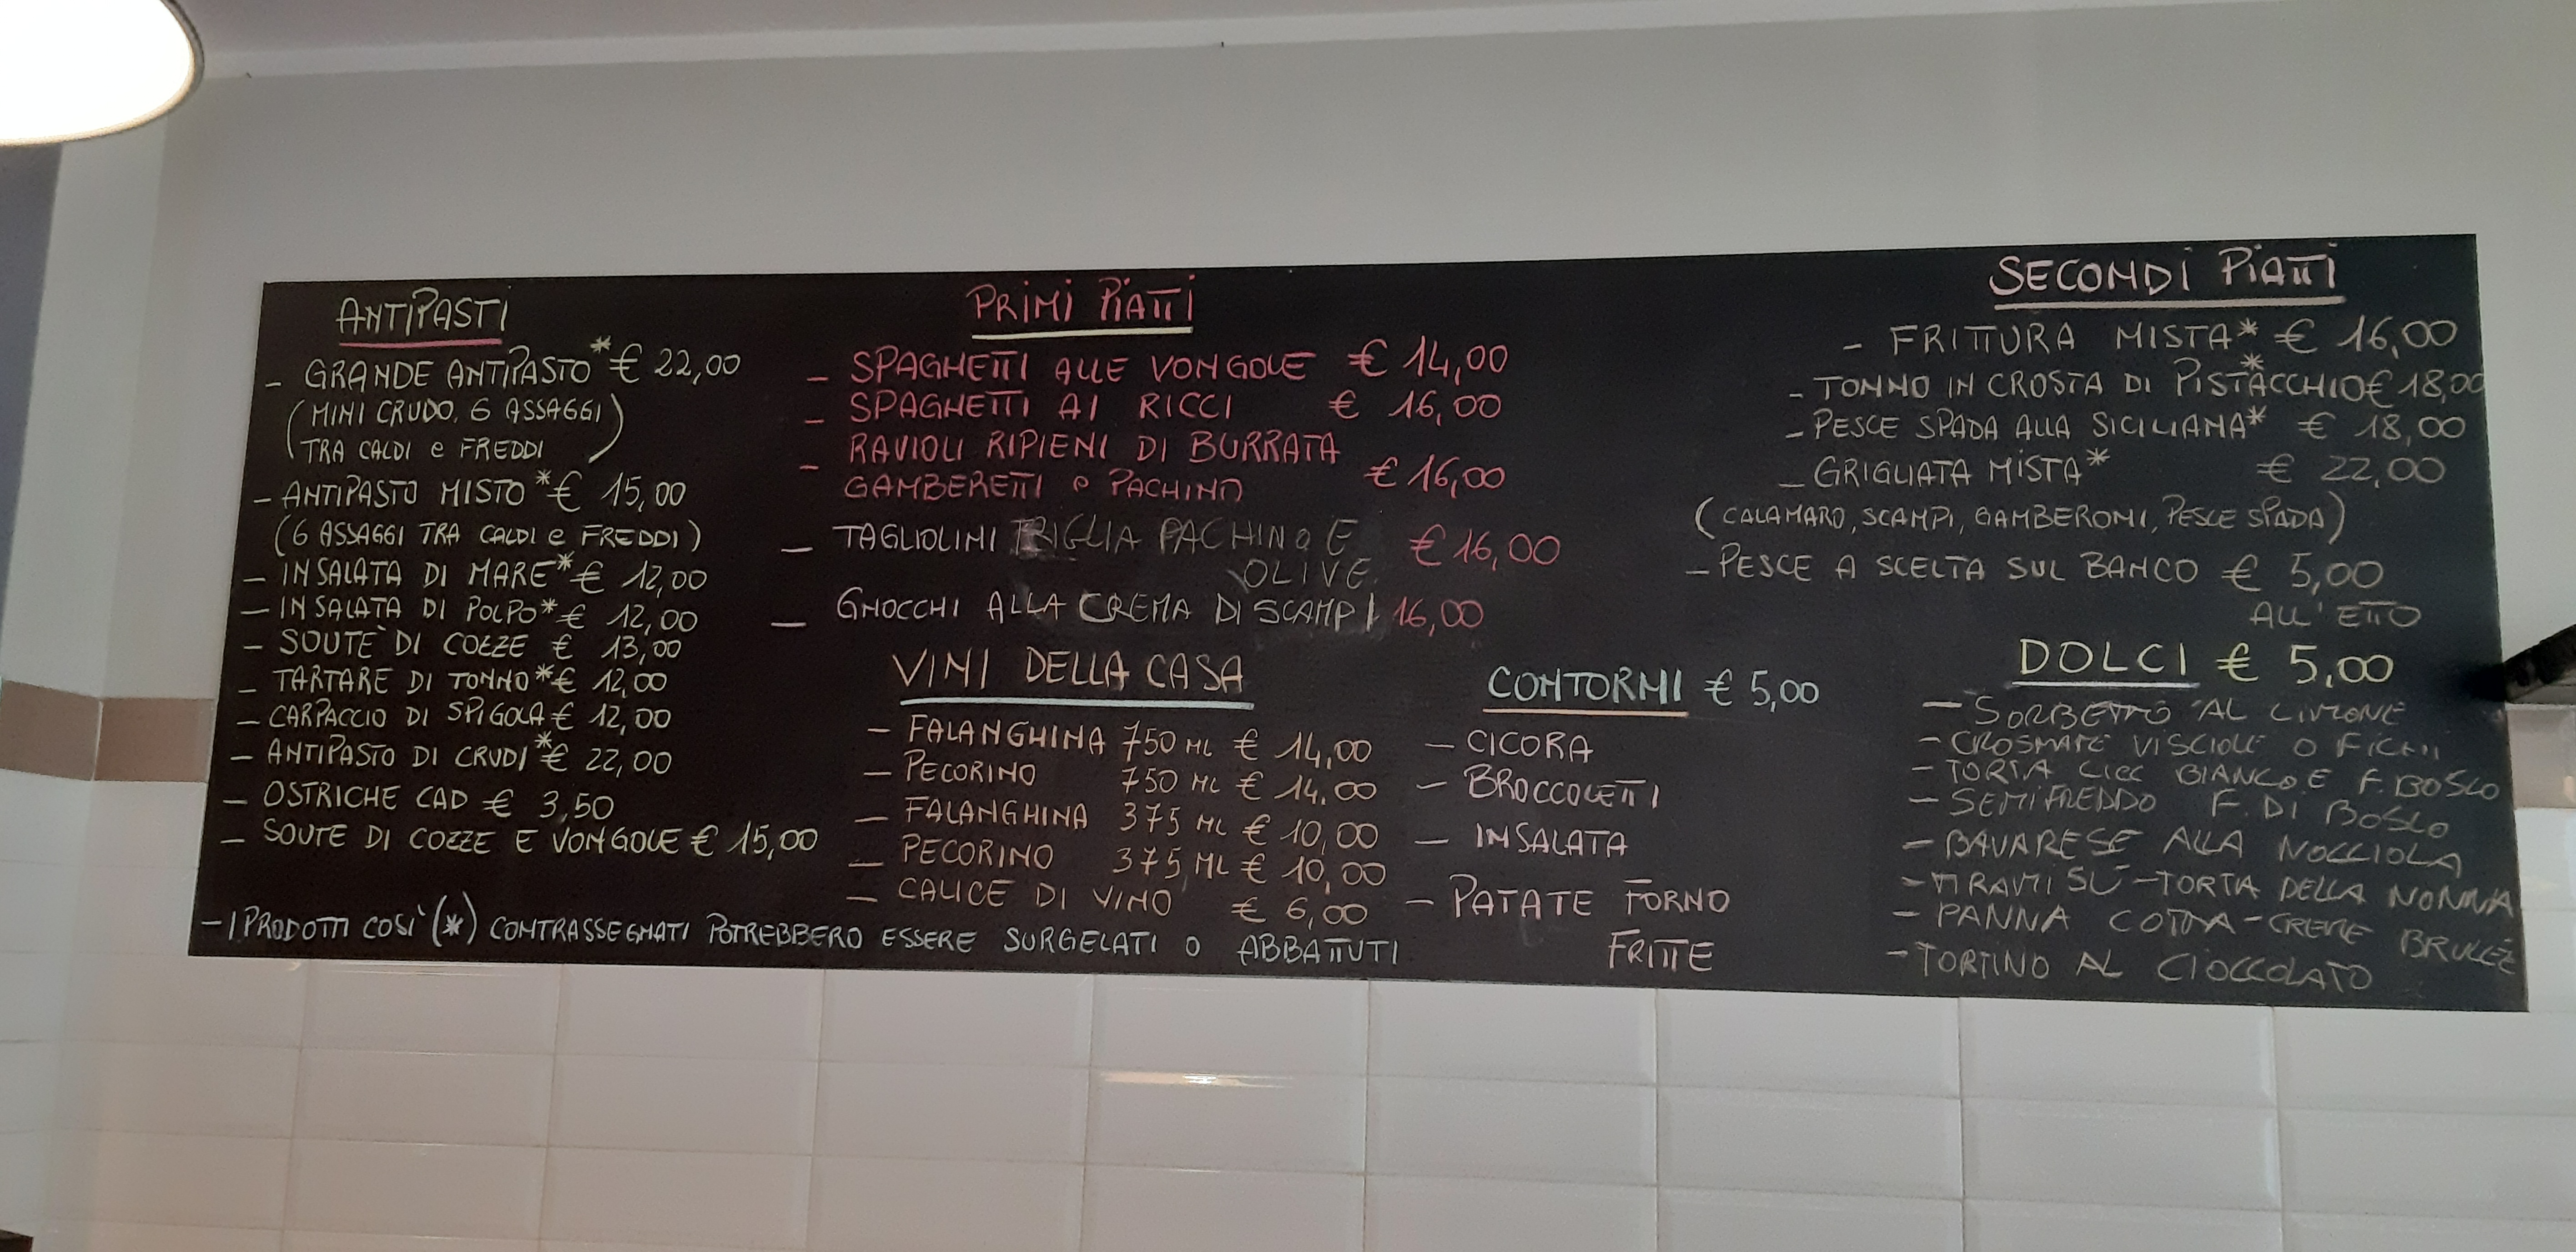 ANTIPASTI
- GRANDE ANTIPASTO* € 22,00
(MINI CRUDO, 6 ASSAGGI
TRA CALDI e FREDDI)
- ANTIPASTO MISTO* € 15,00
(6 ASSAGGI TRA CALDI e FREDDI)
- INSALATA DI MARE* € 12,00
- INSALATA DI POLPO* € 12,00
- SOUTÈ DI COZZE € 13,00
- TARTARE DI TONNO* € 12,00
- CARPACCIO DI SPIGOLA € 12,00
- ANTIPASTO DI CRUDI* € 22,00
- OSTRICHE CAD € 3,50
- SOUTE DI COZZE E VONGOLE € 15,00
PRIMI PIATTI
- SPAGHETTI ALLE VONGOLE € 14,00
- SPAGHETTI AI RICCI € 16,00
- RAVIOLI RIPIENI DI BURRATA
GAMBERETTI e PACHINO € 16,00
- TAGLIOLINI TRIGLIA PACHINO E
OLIVE € 16,00
- GNOCCHI ALLA CREMA DI SCAMPI 16,00
VINI DELLA CASA
- FALANGHINA 750 ML € 14,00
- PECORINO 750 ML € 14,00
- FALANGHINA 375 ML € 10,00
- PECORINO 375 ML € 10,00
- CALICE DI VINO € 6,00
CONTORNI € 5,00
- CICORA
- BROCCOLETTI
- INSALATA
- PATATE FORNO
FRITTE
SECONDI PIATTI
- FRITTURA MISTA* € 16,00
- TONNO IN CROSTA DI PISTACCHIO* € 18,00
- PESCE SPADA ALLA SICILIANA* € 18,00
- GRIGLIATA MISTA* € 22,00
(CALAMARO, SCAMPI, GAMBERONI, PESCE SPADA)
- PESCE A SCELTA SUL BANCO € 5,00
ALL'ETTO
DOLCI € 5,00
- SORBETTO AL LIMONE
- CROSTATE VISCIOLE O FICHI
- TORTA CIOC BIANCO E F. BOSCO
- SEMIFREDDO F. DI BOSCO
- BAVARESE ALLA NOCCIOLA
- TIRAMISÙ - TORTA DELLA NONNA
- PANNA COTTA - CREME BRULEE
- TORTINO AL CIOCCOLATO
- I PRODOTTI COSÌ (*) CONTRASSEGNATI POTREBBERO ESSERE SURGELATI O ABBATTUTI